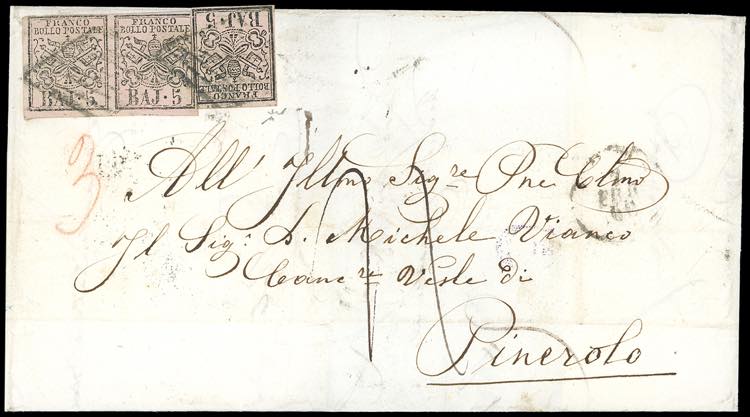 FRANCO
BOLLO POSTALE
BAJ·5
FRANCO
BOLLO POSTALE
BAJ·5
FRANCO
BOLLO POSTALE
BAJ·5
3
All' Illmo Sigre Pne Clmo
Il Sig: D. Michele Vianco
Cancre Vesle di
Pinerolo